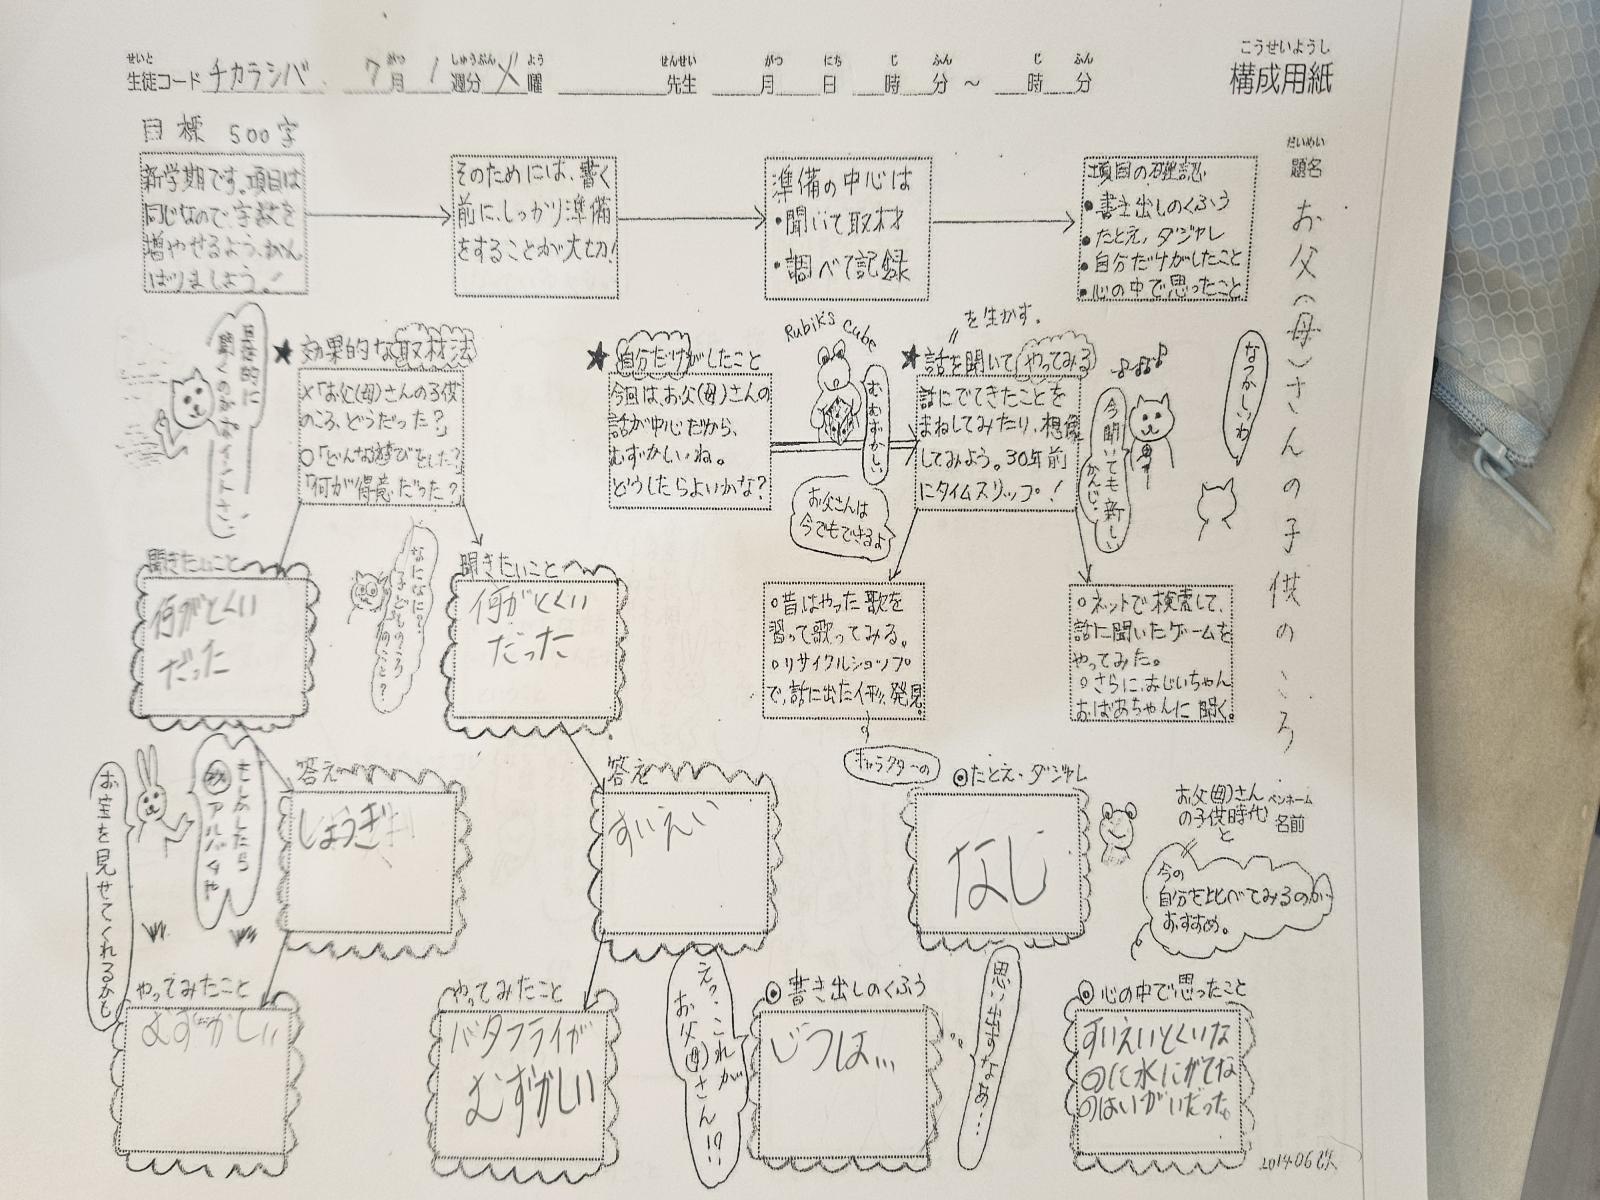 構成用紙
こうせいようし
生徒コード チカラシバ 7月 1週分 火曜 先生 月 日 時 分 〜 時 分
せいと がつ しゅうぶん よう せんせい がつ にち じ ふん じ ふん
題名 お父(母)さんの子供のころ
だいめい
目標 500字
新学期です。項目は
同じなので、字数を
増やせるよう、がん
ばりましょう。
そのためには、書く
前に、しっかり準備
をすることが大切!
準備の中心は
・聞いて取材
・調べて記録
項目の確認
●書き出しのくふう
●たとえ、ダジャレ
●自分だけがしたこと
●心の中で思ったこと
★効果的な取材法
×「お父(母)さんの子供
のころ、どうだった?」
○「どんな遊びをした?」
「何が得意だった?」
具体的に
聞くのがポイントさ。
★自分だけがしたこと
今回は、お父(母)さんの
話が中心だから、
むずかしいね。
どうしたらよいかな?
Rubik's Cube
むむずかしい
お父さんは
今でもできるよ
を生かす。
★話を聞いてやってみる
話にでてきたことを
まねしてみたり、想像
してみよう。30年前
にタイムスリップ!
今聞いても新しい
かんじ…
なつかしいわ
聞きたいこと
何がとくい
だった
なになに?
子どものころ
何のこと?
聞きたいこと
何がとくい
だった
○昔はやった歌を
習って歌ってみる。
○リサイクルショップ
で、話に出た 発見。
○ネットで検索して、
話に聞いたゲームを
やってみた。
○さらに、おじいちゃん
おばあちゃんに聞く。
もしかしたら
アルバムや
お宝を見せてくれるかも
答え
しょうぎ
答え
すいえい
キャラクターの
◎たとえ・ダジャレ
なし
お父(母)さん
の子供時代
と
ペンネーム
名前
今の
自分を比べてみるのが
おすすめ。
やってみたこと
むずかしい
やってみたこと
バタフライが
むずかしい
えっ、これが
お父(母)さん!?
◎書き出しのくふう
じつは…
思い出すなあ…
◎心の中で思ったこと
すいえいとくいな
のに水にがてな
のはいがいだった。
2014.06